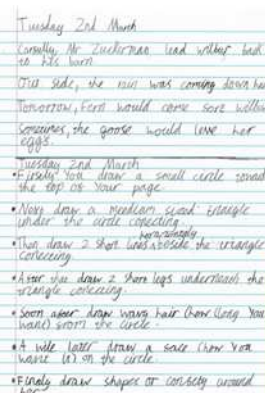 Tuesday 2nd March
Carefully, Mr Zuckerman lead wilbur back
to his barn
Out side, the rain was coming down
Tomorrow, Fern would come
sometimes, the goose would leve her
eggs.
Tuesday 2nd March
• Firstly You draw a small circle
the top of Your page.
• Next draw a triangle
under the circle conecting.
• Then draw 2 short lines beside the triangle
conecting.
• After that draw 2 short legs underneath the
triangle conecting.
• Soon after draw wavy hair (how long You
want) from the circle.
• A wile later draw a face (how You
want it) on the circle.
• Finaly draw shapes or around
her